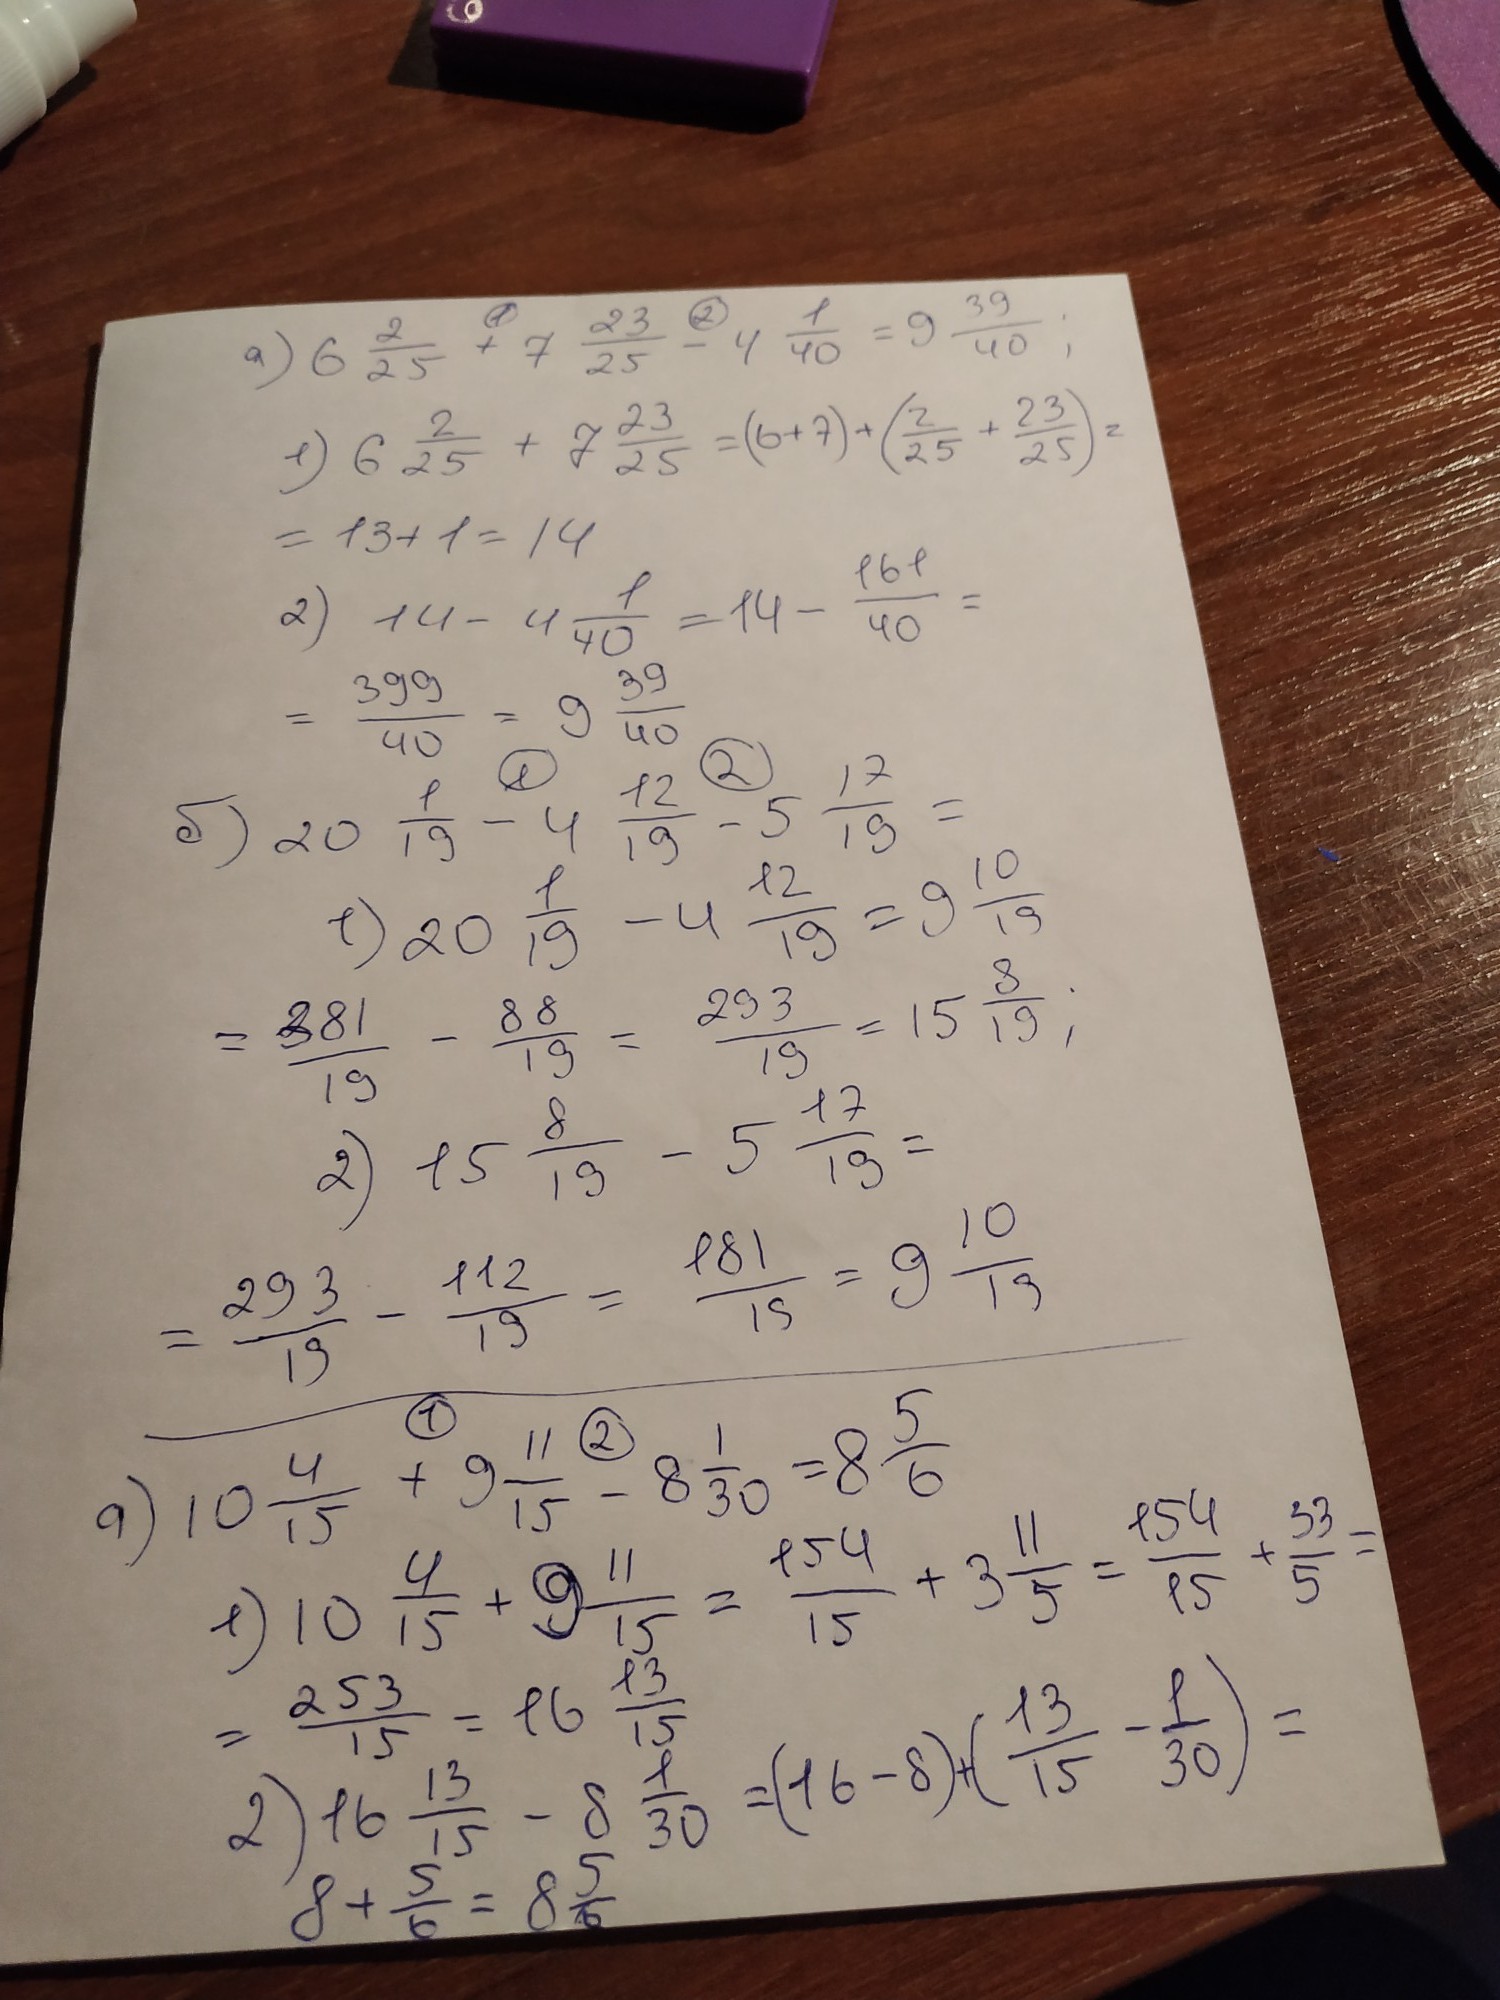 а) 6 2/25 + ① 7 23/25 - ② 4 1/40 = 9 39/40;
1) 6 2/25 + 7 23/25 = (6+7)+(2/25 + 23/25) =
= 13+1 = 14
2) 14 - 4 1/40 = 14 - 161/40 =
= 399/40 = 9 39/40
б) 20 1/19 - ① 4 12/19 - ② 5 17/19 =
1) 20 1/19 - 4 12/19 = 9 10/19
= 381/19 - 88/19 = 293/19 = 15 8/19;
2) 15 8/19 - 5 17/19 =
= 293/19 - 112/19 = 181/19 = 9 10/19
а) 10 4/15 + ① 9 11/15 - ② 8 1/30 = 8 5/6
1) 10 4/15 + 9 11/15 = 154/15 + 3 11/5 = 154/15 + 33/5 =
= 253/15 = 16 13/15
2) 16 13/15 - 8 1/30 = (16-8)+(13/15 - 1/30) =
8 + 5/6 = 8 5/6